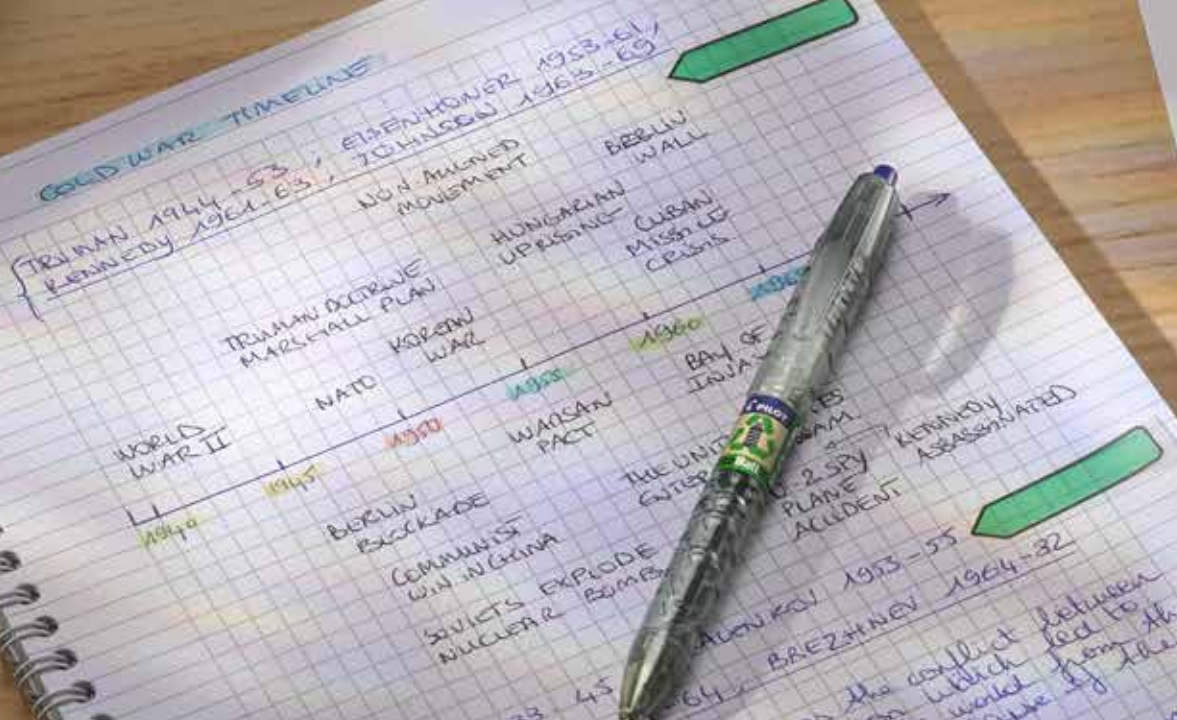 COLD WAR TIMELINE
TRUMAN 1944-53, EISENHONER 1953-61,
KENNEDY 1961-63, JOHNSON 1963-69
NON ALIGNED
MOVEMENT
BERLIN
WALL
HUNGARIAN
UPRISING
CUBAN
MISSILE
CRISIS
TRUMAN DOCTRINE
MARSHALL PLAN
KOREAN
WAR
NATO
WORLD
WAR II
1940
1945
1950
1955
1960
WARSAN
PACT
BAY OF
BERLIN
BLOCKADE
COMMUNIST
WIN IN CHINA
SOVIETS EXPLODE
NUCLEAR BOMB
THE
KENNEDY
ASSASSINATED
2 SPY
PLANE
ACCIDENT
PILOT
1953-55
45
BREZHNEV 1964-82
the conflict between
which led to
world from the
of the